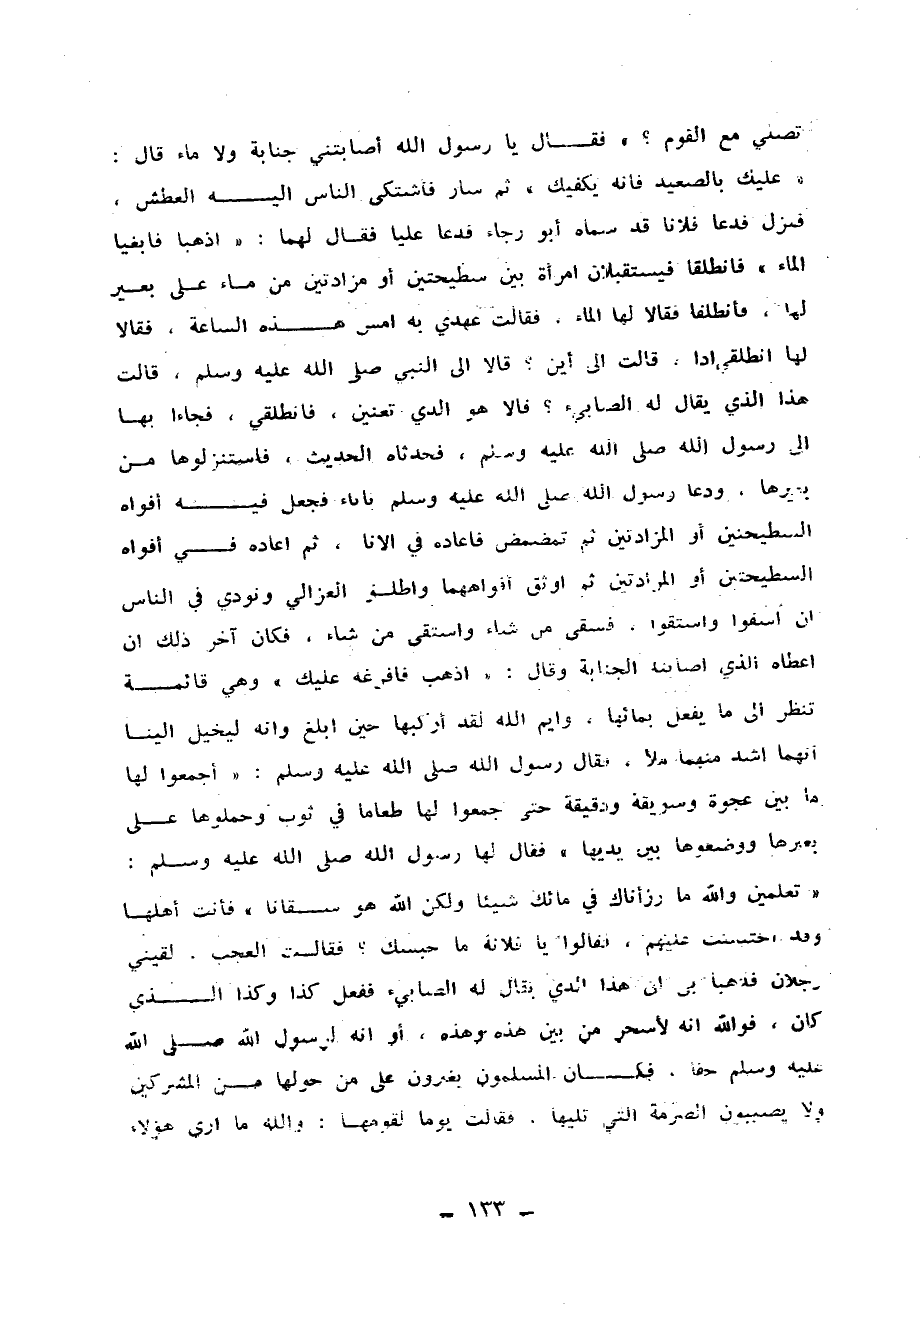 تصلي مع القوم ؟ » فقـــال يا رسول الله أصابتني جنابة ولا ماء قال :
« عليك بالصعيد فانه يكفيك » ثم سار فأشتكى الناس اليـــه العطش ،
فنزل فدعا فلانا قد سماه أبو رجاء فدعا عليا فقـال لهما : « اذهبا فابغيا
الماء » فانطلقا فيستقبلان امرأة بين سطيحتين أو مزادتين من مـاء علـى بعــير
لها ، فأنطلقا فقالا لها الماء . فقالت عهدي به امس هـــذه الساعة ، فقالا
لها انطلقي اذا . قالت الى أين ؟ قالا الى النبي صلى الله عليه وسلم ، قالت
هذا الذي يقال له الصابيء ؟ قالا هو الذي تعنين ، فانطلقي ، فجاءا بهـا
الى رسول الله صلى الله عليه وسلم ، فحدثاه الحديث ، فاستنزلوها مـن
بعيرها . ودعا رسول الله صلى الله عليه وسلم باناء فجعل فيـــه أفواه
السطيحتين أو المزادتين ثم تمضمض فاعاده في الانا ، ثم اعاده فـــي أفواه
السطيحتين أو المزادتين ثم اوثق أفواههما واطلـق العزالي ونودي في الناس
ان أسقوا واستقوا . فسقى من شاء واستقى من شاء ، فكان آخر ذلك ان
اعطاه الذي اصابته الجنابة وقال : « اذهب فافرغه عليك » وهي قائمـــة
تنظر الى ما يفعل بمائها . وايم الله لقد أركبها حين ابلغ وانه ليخيل الينـا
أنهما اشد منهما ملأ ، فقال رسول الله صلى الله عليه وسلم : « أجمعوا لها
ما بين عجوة وسويقة ودقيقة حتى جمعوا لها طعاما في ثوب وحملوها علـــى
بعيرها ووضعوها بين يديها » فقال لها رسول الله صلى الله عليه وســلم :
« تعلمين والله ما رزأناك في مائك شيئا ولكن الله هو ســقانا » فأتت أهلهـا
وقد احتبست عليهم ، فقالوا يا فلانة ما حبسك ؟ فقالـت العجب . لقيني
رجلان فذهبا بي الى هذا الذي يقال له الصابيء ففعل كذا وكذا الـــذي
كان ، فوالله انه لأسحر من بين هذه وهذه ، أو انه لرسول الله صــلى الله
عليه وسلم حقا . فكـــان المسلمون يغيرون على من حولها مــن المشركين
ولا يصيبون الصرمة التي تليها . فقالت يوما لقومهـا : والله ما ارى هؤلاء
– ١٣٣ –